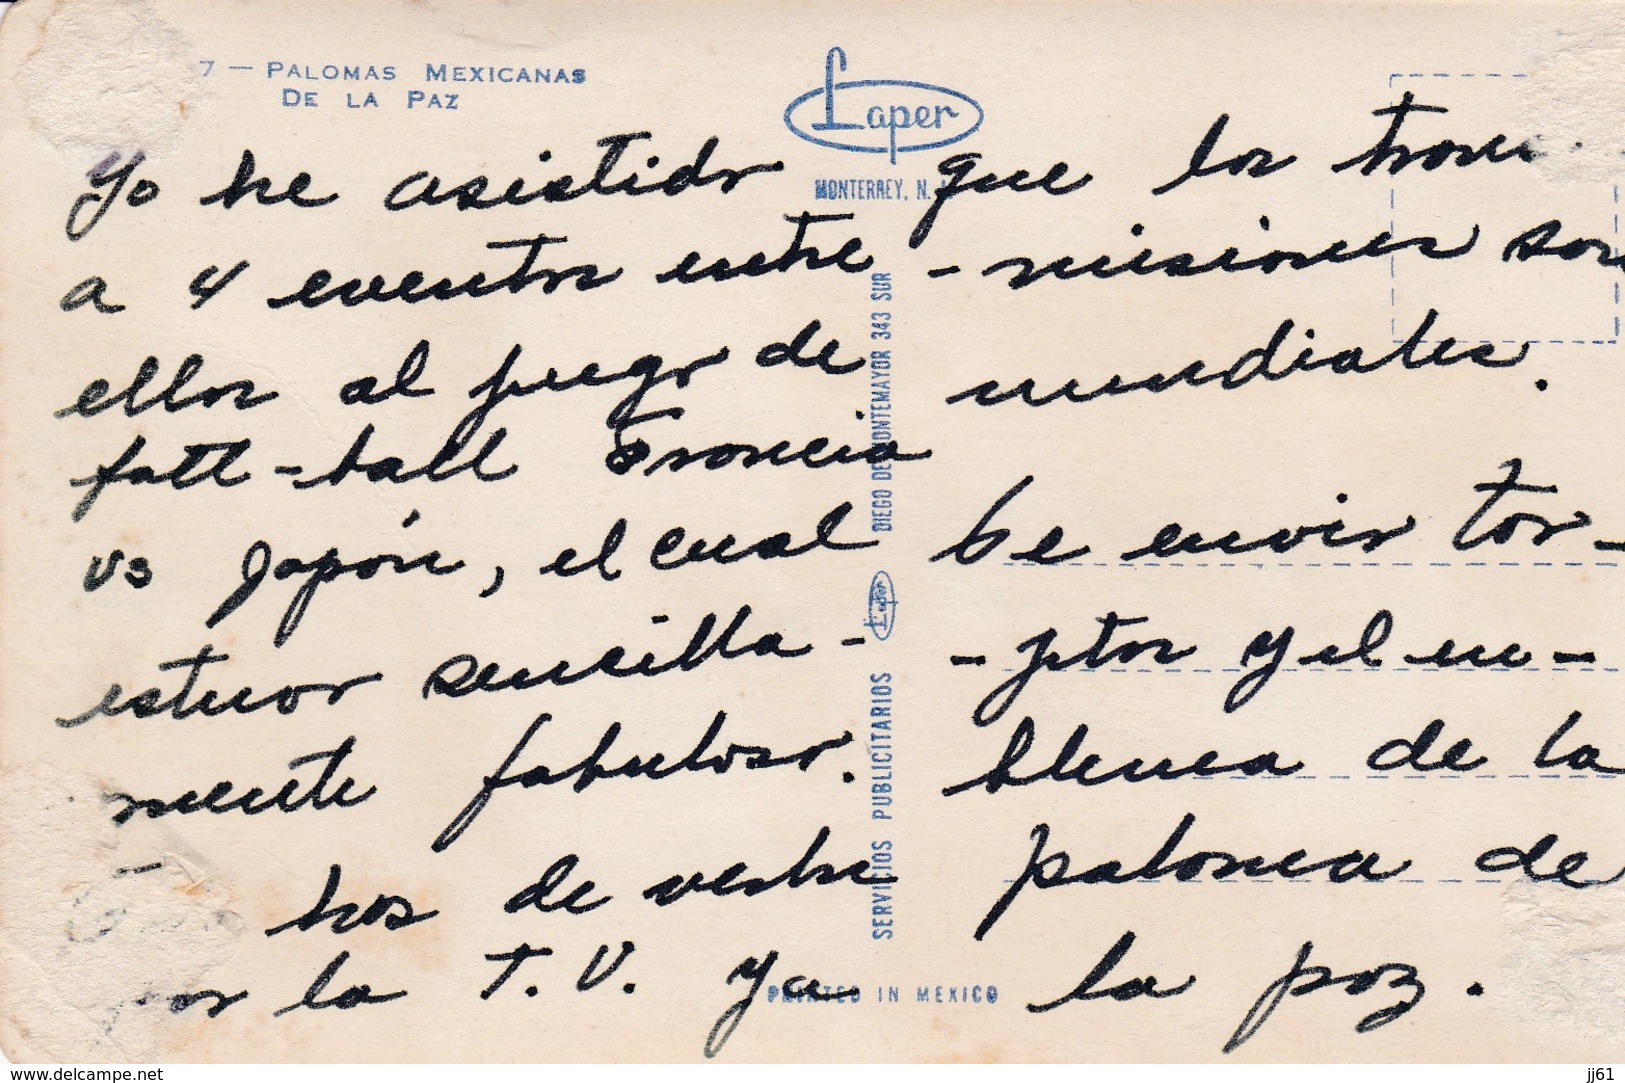 7 — PALOMAS MEXICANAS
DE LA PAZ
Laper
MONTERREY, N.
Yo he asistido
a 4 eventos entre
ellos al juego de
fott-ball Francia
vs Japón, el cual
estuvo sencilla-
mente fabuloso.
has de verlo
por la T.V. ya
que los trans
-misiones son
mundiales.
Te envio tar-
-jetas y el em-
blema de la
paloma de
la paz.
SERVICIOS PUBLICITARIOS Laper DIEGO DE MONTEMAYOR 343 SUR
PRINTED IN MEXICO
www.delcampe.net
jj61